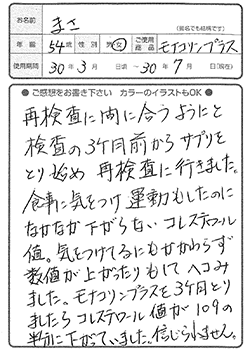 お名前 まさ
(匿名でも結構です)
年齢 54才 性別 男・女 ご使用商品 モナコリンプラス
使用期間 30年3月 日頃〜30年7月 日(現在)
●ご感想をお書き下さい カラーのイラストもOK●
再検査に間に合うようにと
検査の3ケ月前からサプリを
とり始め 再検査に行きました。
食事に気をつけ運動もしたのに
なかなか下がらない コレステロール
値。気をつけてるにもかかわらず
数値が上がったりもして ヘコみ
ました。モナコリンプラスを3ケ月とり
ましたら コレステロール値が109の
半分に下がっていました。信じられません。